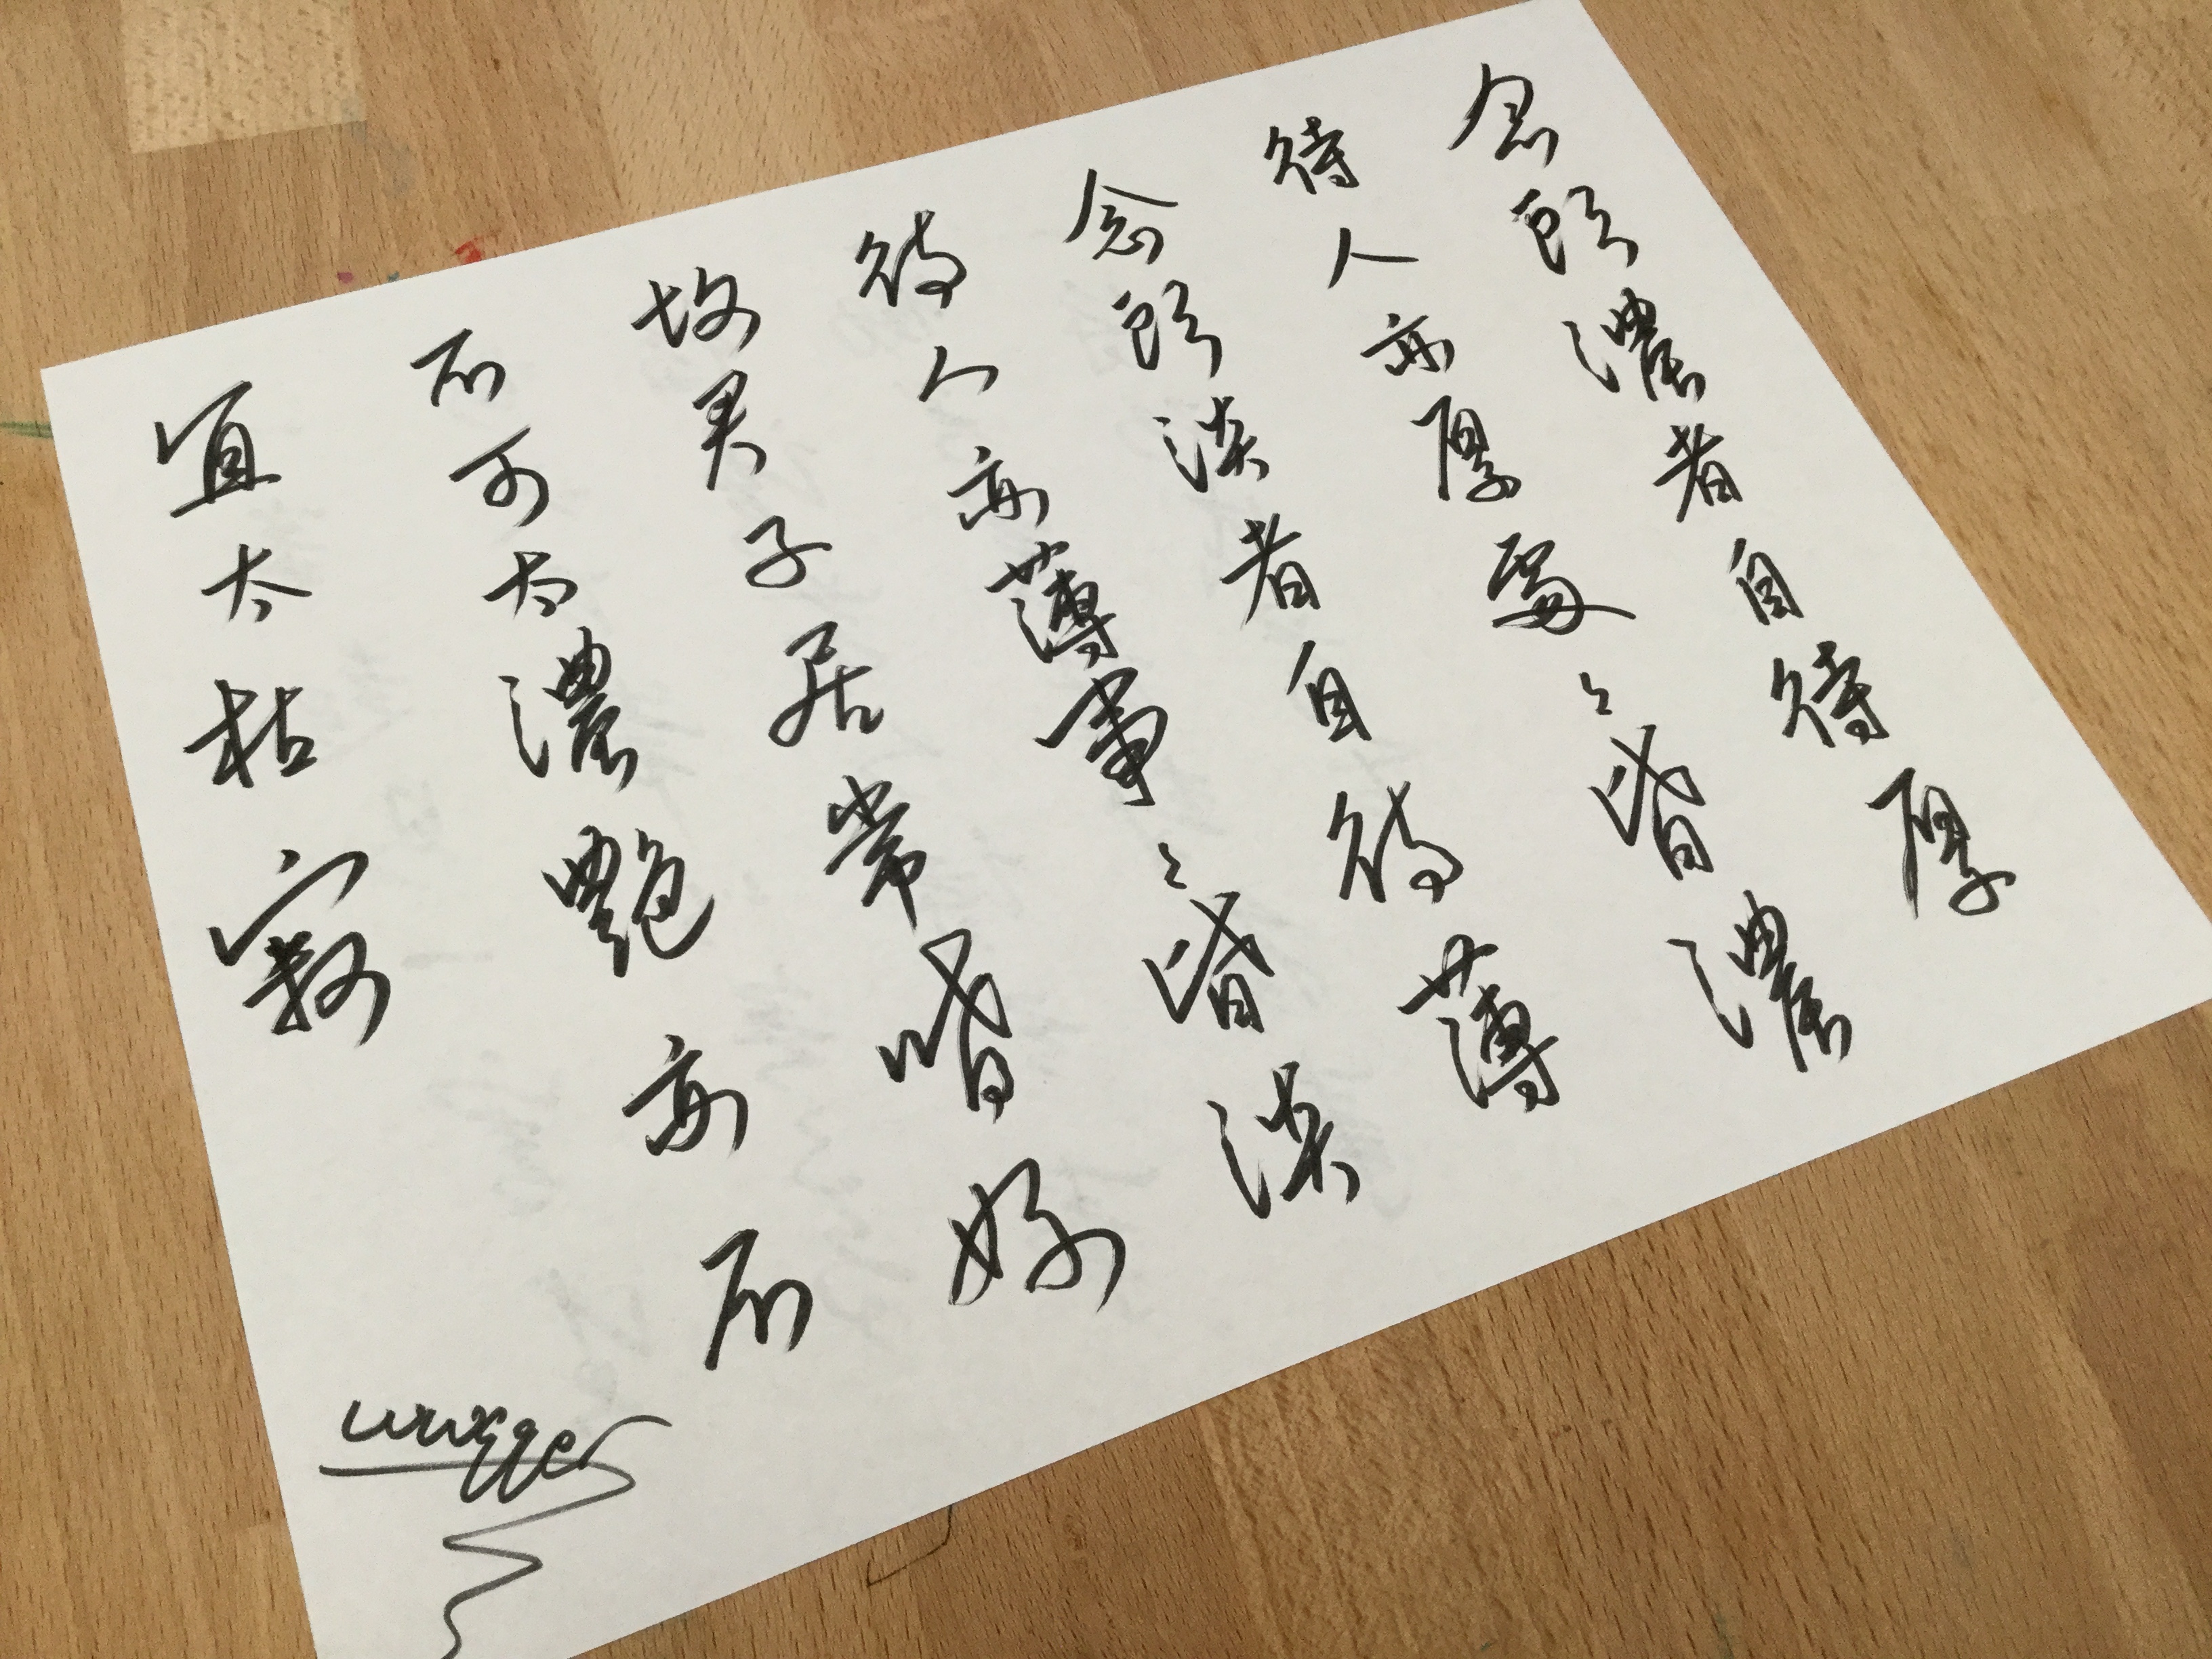 念頭濃者自待厚
待人亦厚處々皆濃
念頭淡者自待薄
待人亦薄事々皆淡
故君子居常嗜好
不可太濃艷亦不
宜太枯寂